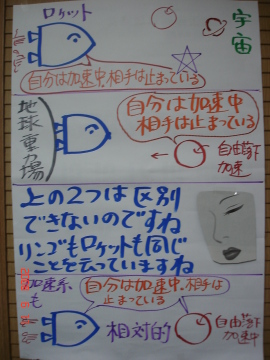 ロケット
宇宙
自分は加速中相手は止まっている
地球重力場
自分は加速中
相手は止まっている
自由落下
加速
上の2つは区別
できないのですね
リンゴもロケットも同じ
ことを云っていますね
加速系
も
自分は加速中、相手は
止まっている
相対的
自由落下
加速中